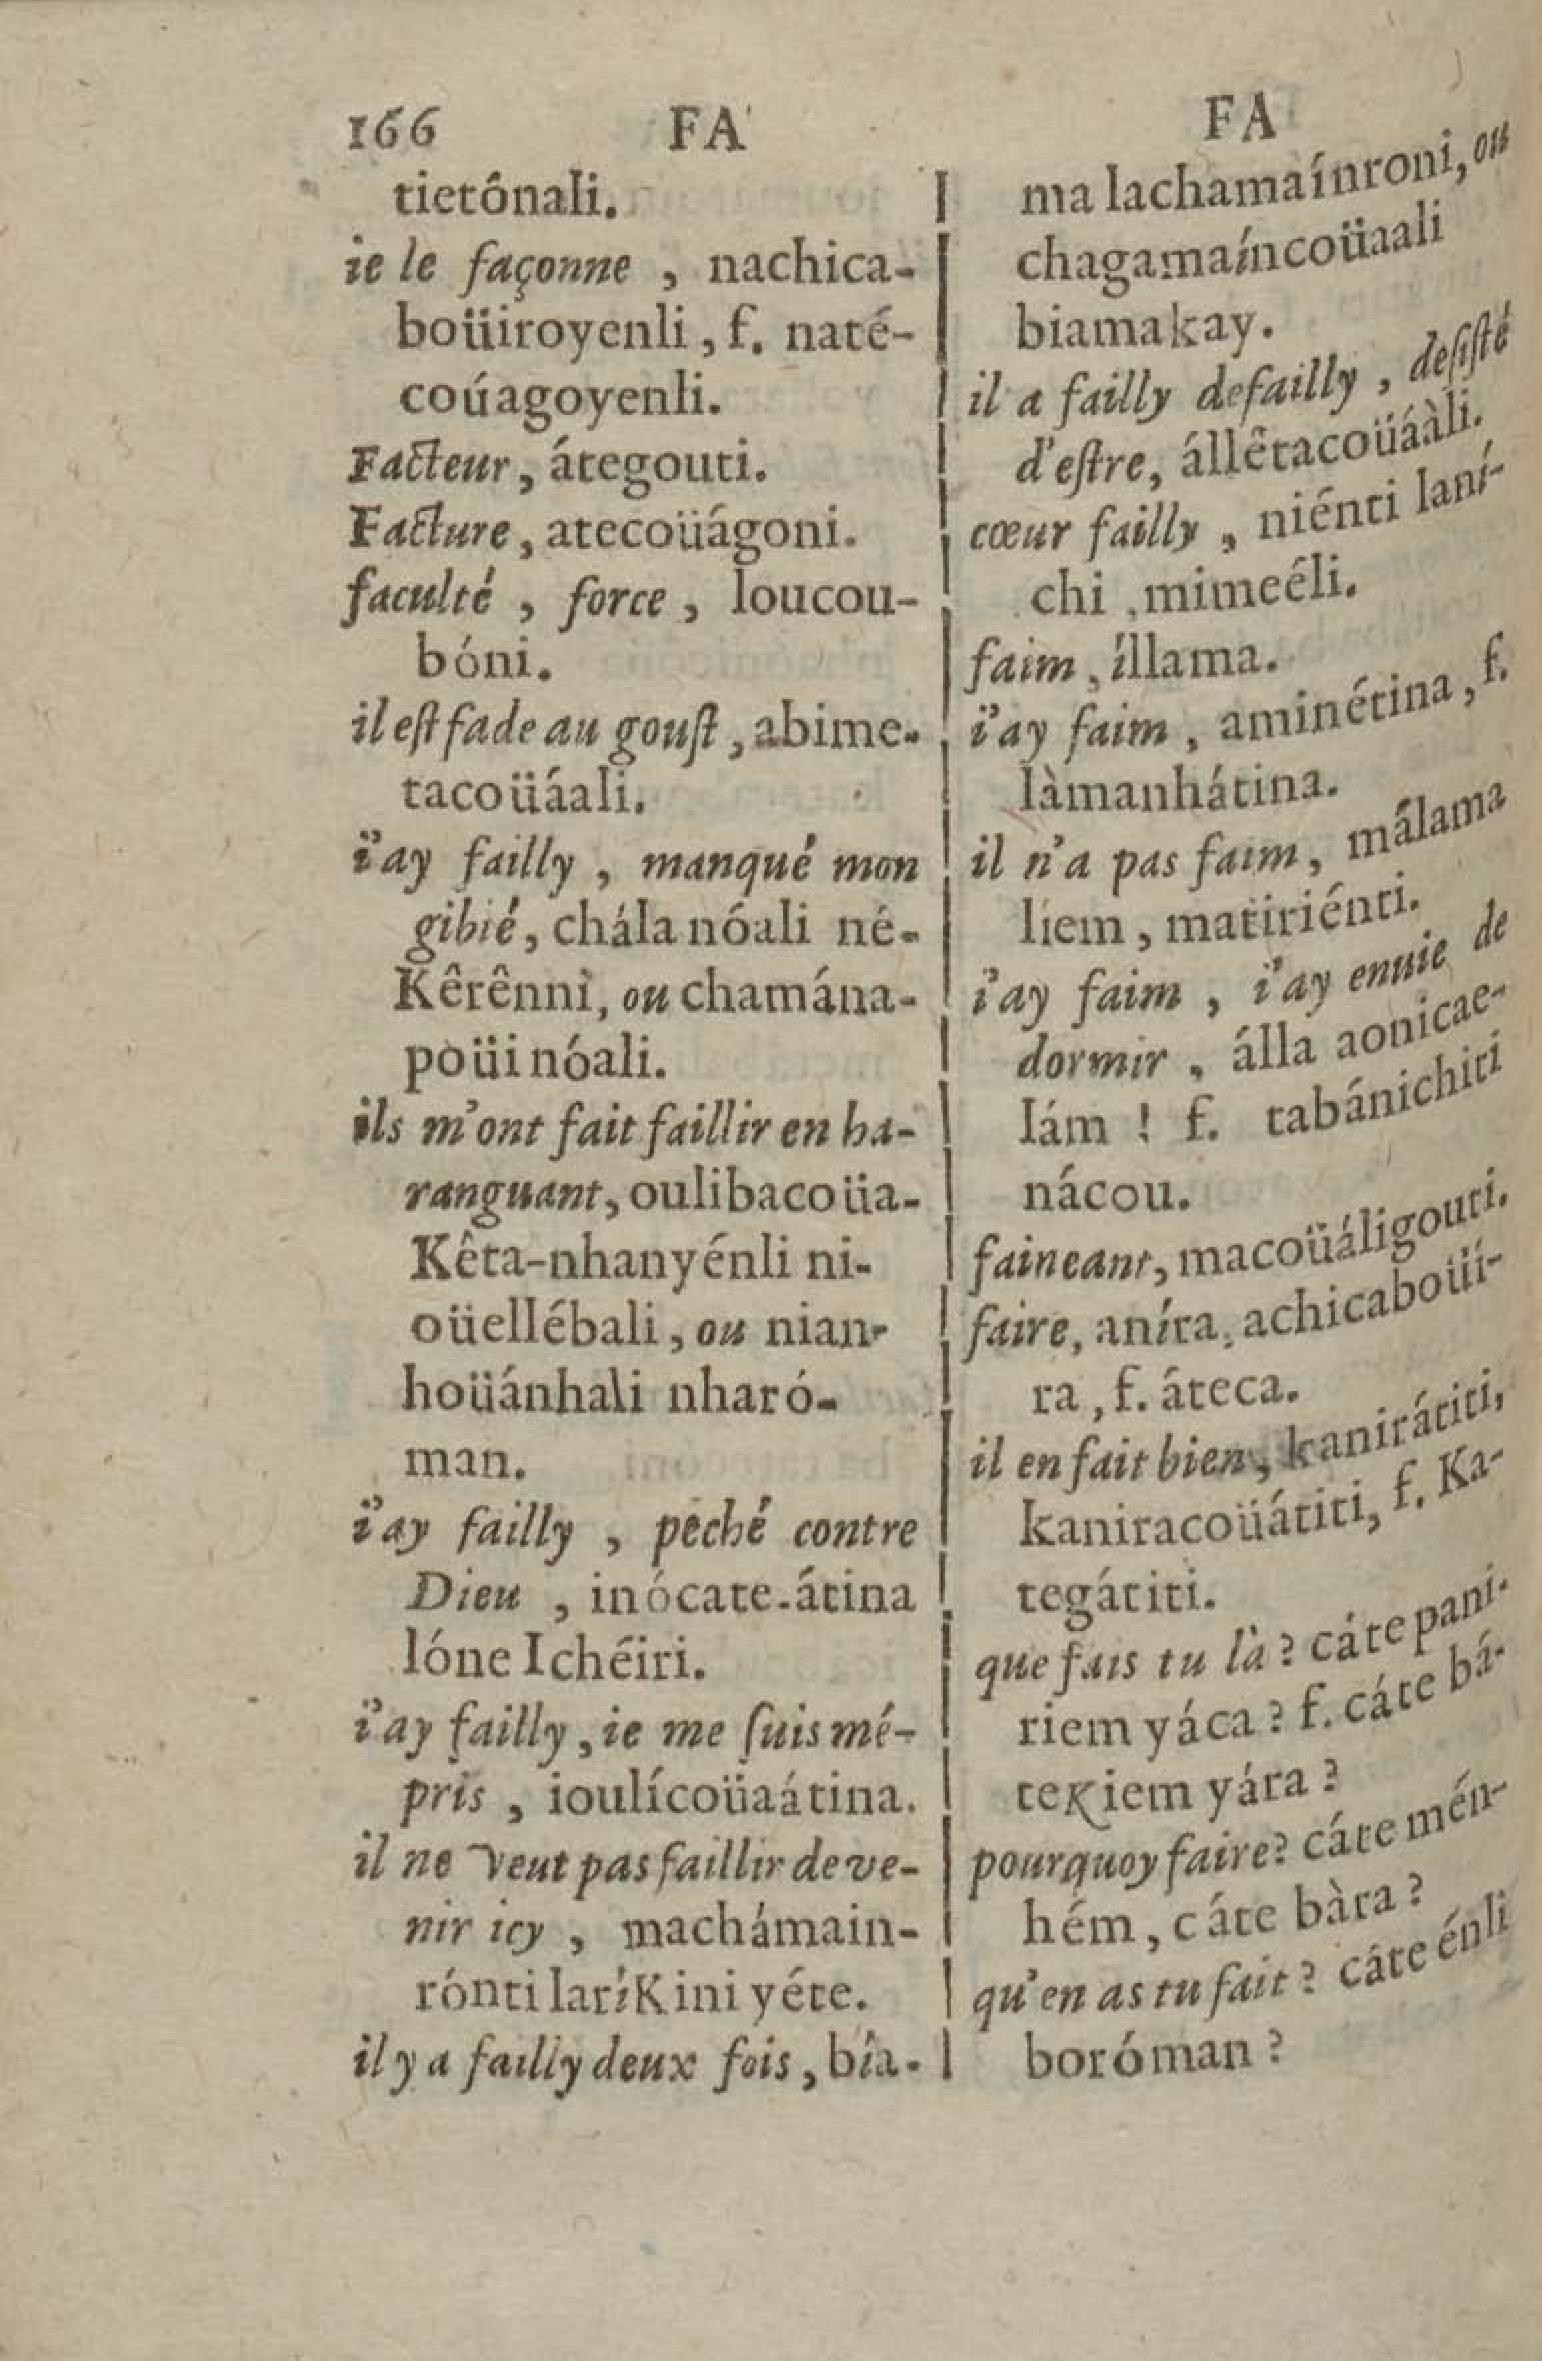 166 FA FA
tietônali.
ie le façonne , nachica-
boüiroyenli , f. naté-
coúagoyenli.
Facteur, átegouti.
Facture, atecoüágoni.
faculté , force , loucou-
bóni.
il eſt fade au gouſt , abime-
tacoüáali.
i'ay failly , manqué mon
gibié, chála nóali né-
Kêrênni, ou chamána-
poüi nóali.
ils m'ont fait faillir en ha-
ranguant, oulibacoüa-
Kêta-nhanyénli ni-
oüellébali, ou nian-
hoüánhali nharó-
man.
i'ay failly , peché contre
Dieu , inócate-átina
lóne Ichéiri.
i'ay failly, ie me ſuis mé-
pris , ioulícoüaátina.
il ne veut pas faillir de ve-
nir icy , machámain-
rónti laríKini yéte.
il y a failly deux fois, bía-
ma lachamaínroni, ou
chagamaíncoüaali
biamakay.
il a failly defailly , deſiſté
d'eſtre, állêtacoüáàli.
cœur failly , niénti laní-
chi , mimeéli.
faim , íllama.
i'ay faim , aminétina, f.
làmanhátina.
il n'a pas faim , málama
liem, matiriénti.
i'ay faim , i'ay enuie de
dormir , álla aonicae-
Iám ! f. tabánichiti
nácou.
faineant, macoüáligouti.
faire, aníra, achicaboüí-
ra, f. áteca.
il en fait bien, kanirátiti,
kaniracoüátiti, f. Ka-
tegátiti.
que fais tu là ? cáte pani-
riem yáca ? f. cáte bá-
teKiem yára ?
pourquoy faire? cáte mén-
hém, cáte bàra ?
qu'en as tu fait ? cáte énli
boróman ?